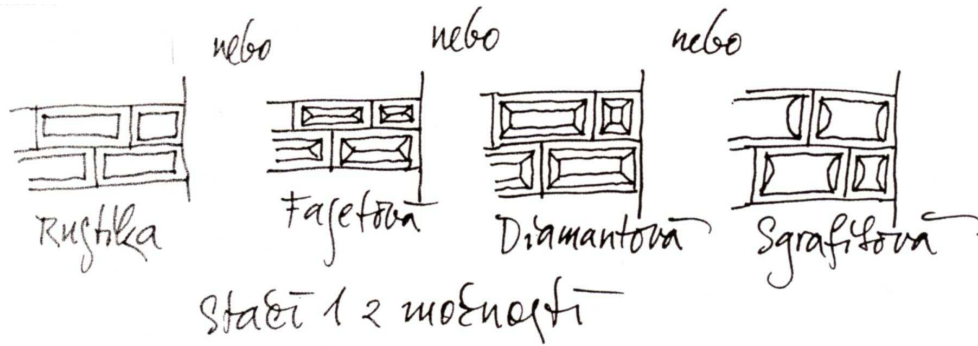 nebo nebo nebo
Rustika Fasetová Diamantová Sgrafitová
Stačí 1 z možností